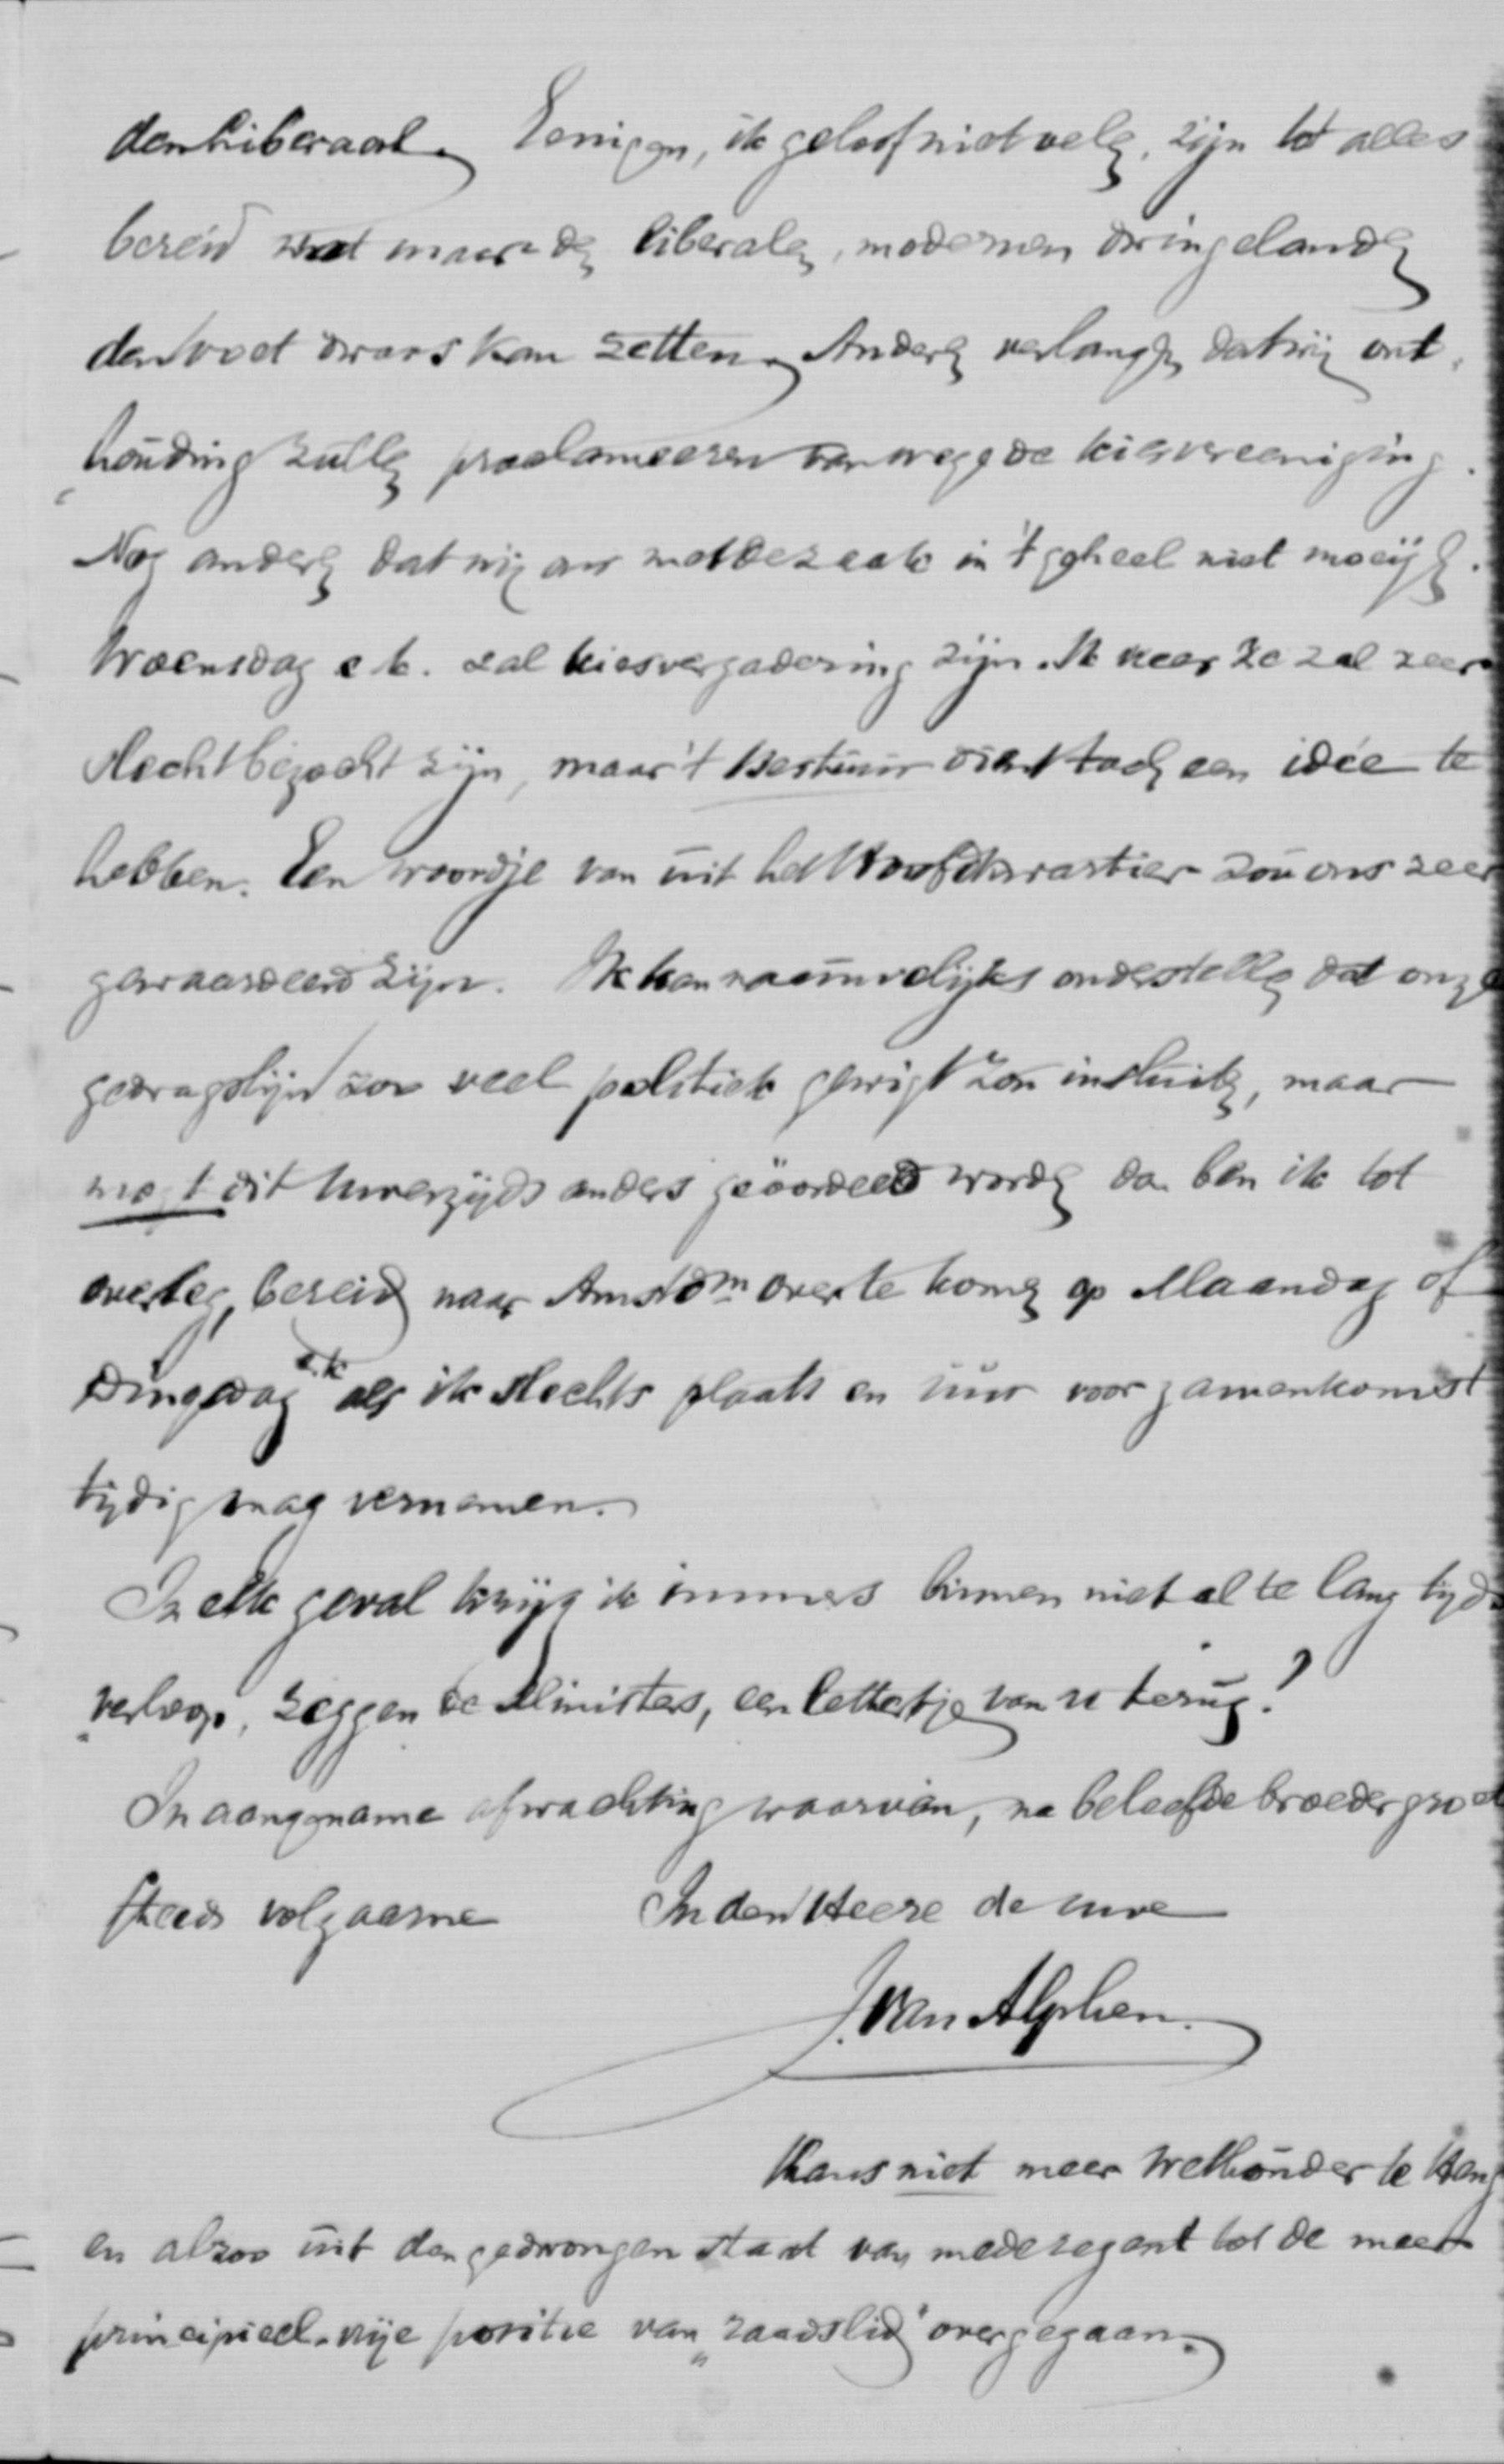 den Liberaal. Eenigen, ik geloof niet velen, zijn tot alles
bereid wat maar de liberalen, modernen dwingelanden
den voet dwars kan zetten. Anderen verlangen dat wij ont-
"houding zullen proclameeren vanwege de kiesvereeniging.
Nog anderen dat wij ons met de zaak in 't geheel niet moeijen.
Woensdag e.k. zal kiesvergadering zijn. Ik vrees ze zal zeer
slecht bezocht zijn, maar 't Bestuur dient toch een idée te
hebben. Een woordje van uit het Hoofdkwartier zou ons zeer
gewaardeerd zijn. Ik kan naauwelijks onderstellen dat onze
gedragslijn zoo veel politiek gewigt zou insluiten, maar
mogt dit Uwerzijds anders geöordeeld worden dan ben ik tot
overleg, bereid naar Amstdm over te komen op Maandag of
Dingsdag e.k. als ik slechts plaats en uur voor zamenkomst
tijdig mag vernemen.
In elk geval krijg ik immers binnen niet al te lang tijds
"verloop, zeggen de Ministers, een lettertje van u terug?
In aangename afwachting waarvan, na beleefde broedergroet
steeds volgaarne In den Heere de uwe
J. van Alphen.
thans niet meer Wethouder te
en alzoo uit den gedwongen staat van mederegent tot de meer
principieel-vrije positie van "raadslid" overgegaan.